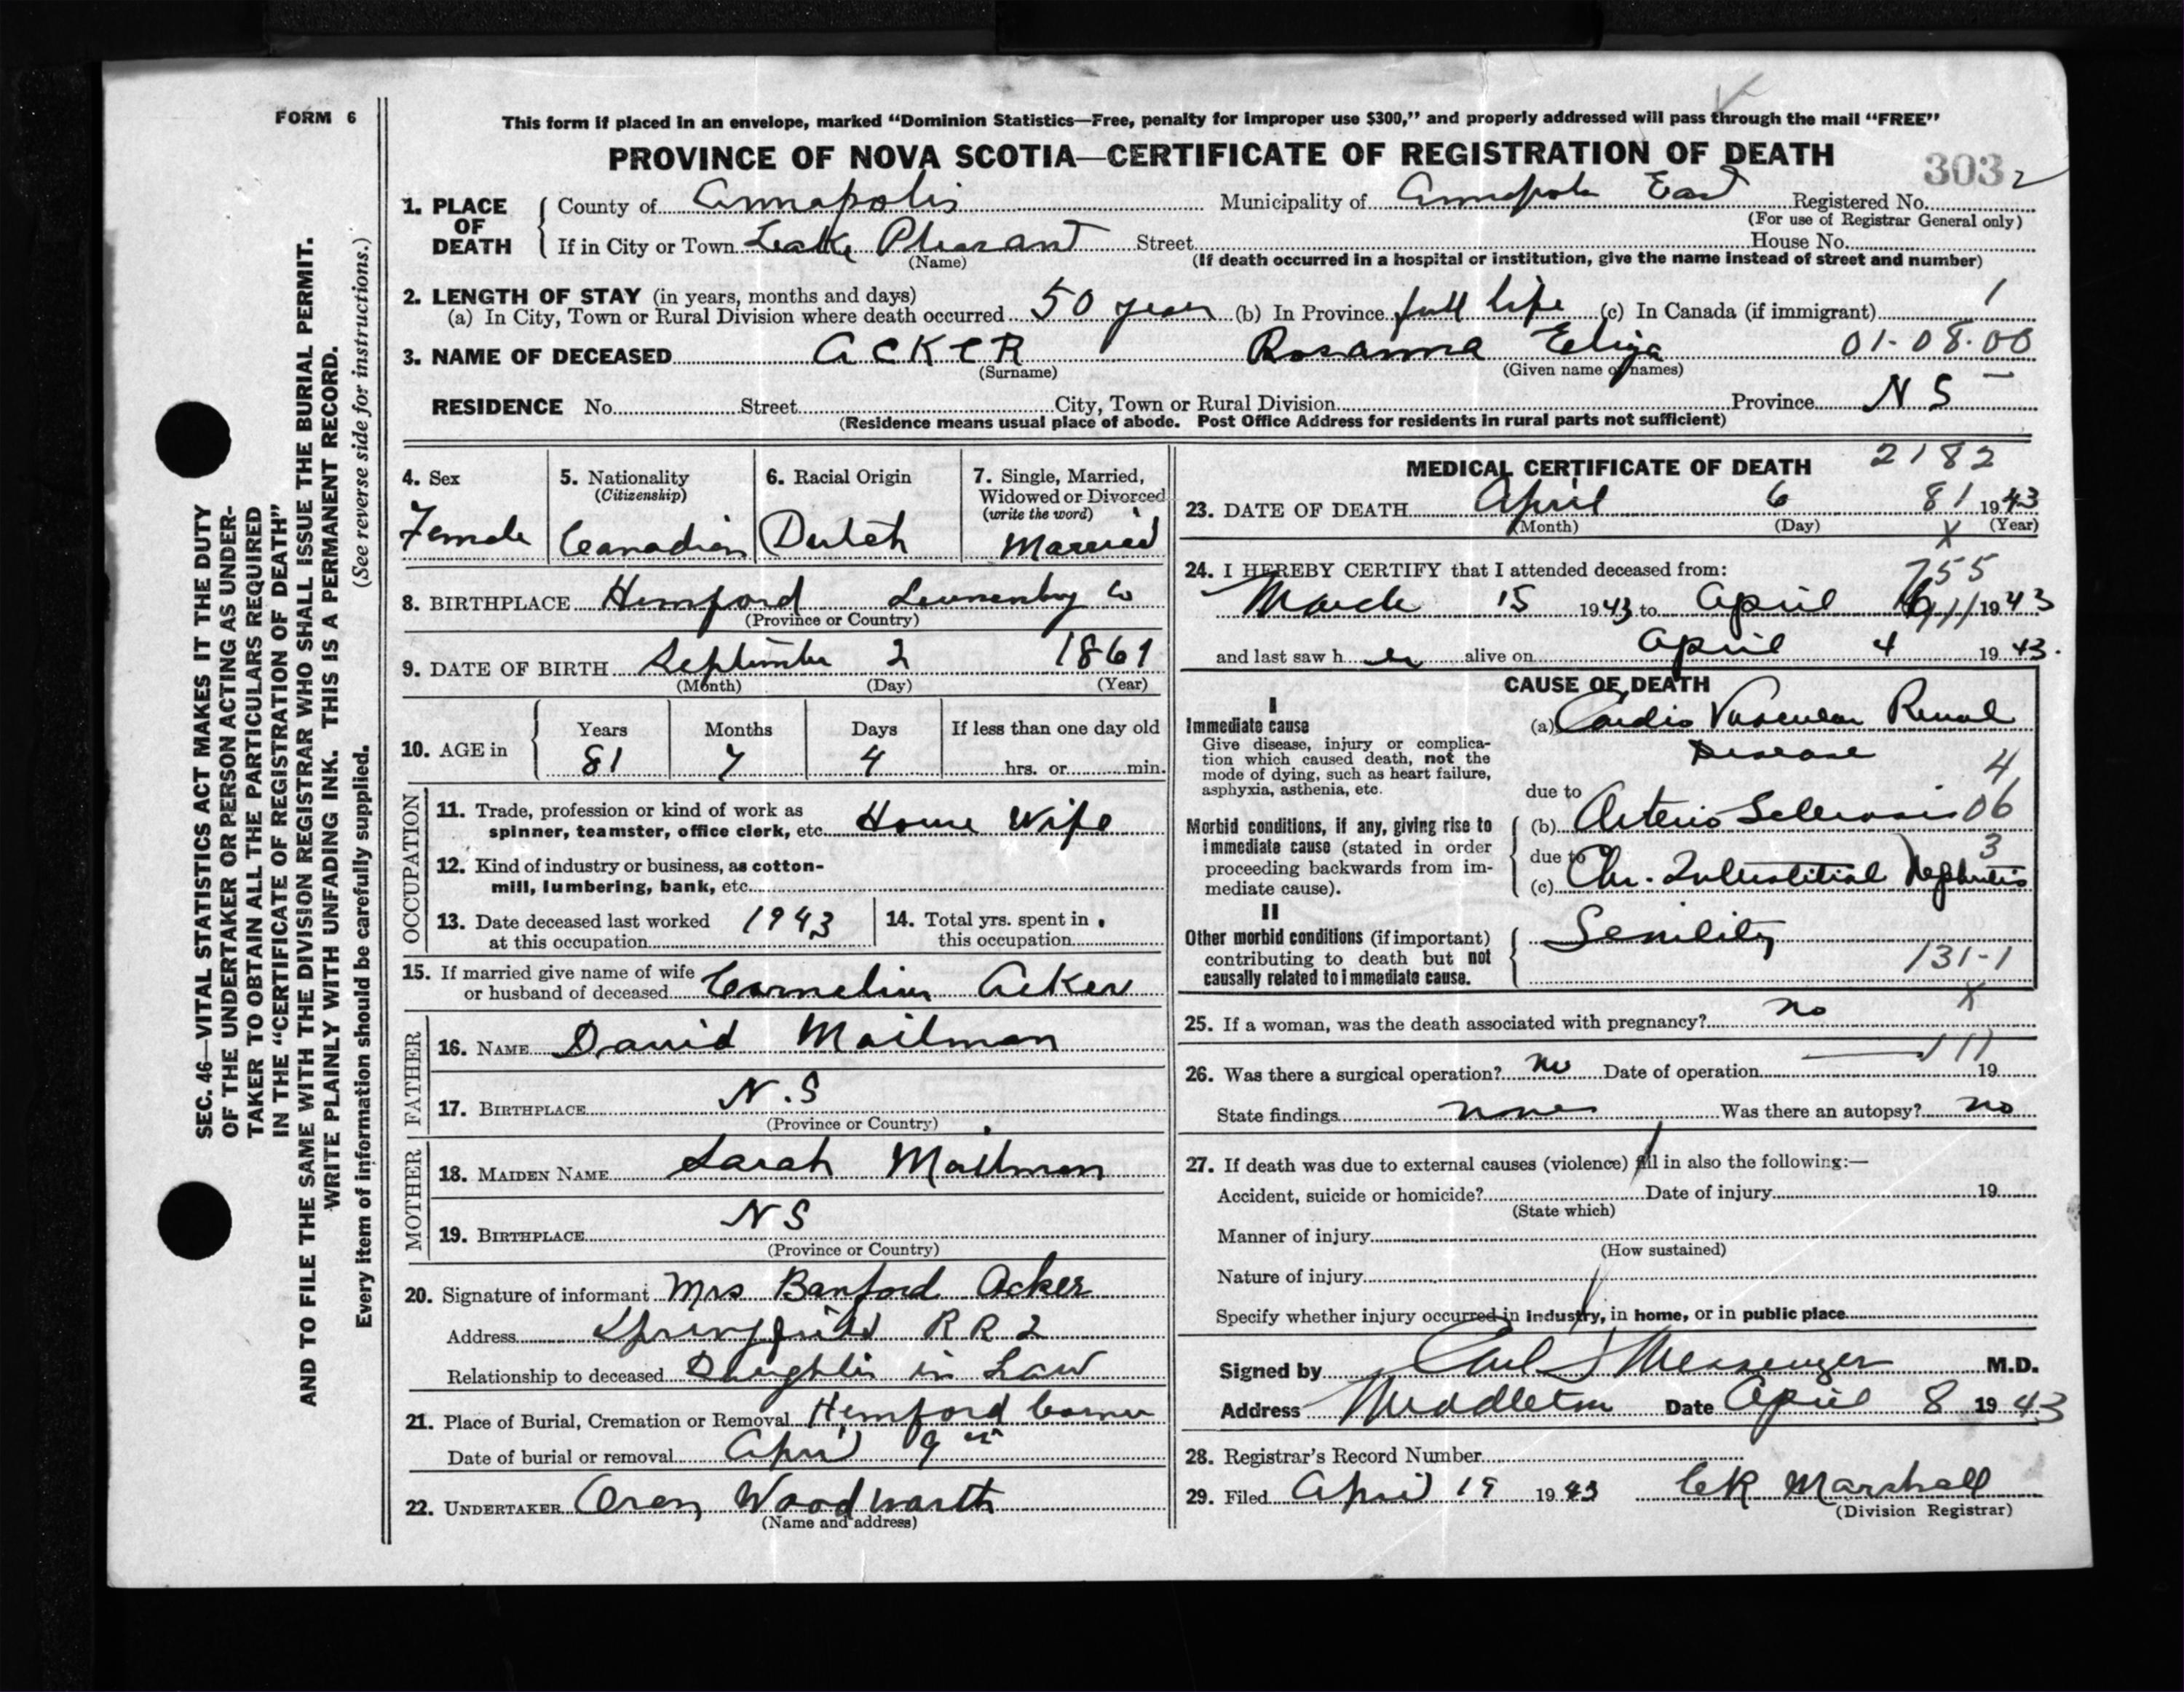 FORM 6
This form if placed in an envelope, marked “Dominion Statistics—Free, penalty for improper use $300,” and properly addressed will pass through the mail “FREE”
PROVINCE OF NOVA SCOTIA—CERTIFICATE OF REGISTRATION OF DEATH
3032
1. PLACE OF DEATH
County of Annapolis Municipality of Annapolis East Registered No.
(For use of Registrar General only)
If in City or Town Lake Pleasant Street House No.
(Name) (If death occurred in a hospital or institution, give the name instead of street and number)
2. LENGTH OF STAY (in years, months and days)
(a) In City, Town or Rural Division where death occurred 50 years (b) In Province full life (c) In Canada (if immigrant) 1
3. NAME OF DECEASED ACKER Rosanna Eliza 01-08-00
(Surname) (Given name or names)
RESIDENCE No. Street City, Town or Rural Division Province N S
(Residence means usual place of abode. Post Office Address for residents in rural parts not sufficient)
4. Sex
Female
5. Nationality
(Citizenship)
Canadian
6. Racial Origin
Dutch
7. Single, Married,
Widowed or Divorced
(write the word)
Married
8. BIRTHPLACE Hemford Lunenburg Co
(Province or Country)
9. DATE OF BIRTH September 2 1861
(Month) (Day) (Year)
10. AGE in
Years Months Days If less than one day old
81 7 4 hrs. or min.
OCCUPATION
11. Trade, profession or kind of work as
spinner, teamster, office clerk, etc. House Wife
12. Kind of industry or business, as cotton-
mill, lumbering, bank, etc.
13. Date deceased last worked
at this occupation 1943
14. Total yrs. spent in
this occupation
15. If married give name of wife
or husband of deceased Cornelius Acker
FATHER
16. NAME David Mailman
17. BIRTHPLACE N.S
(Province or Country)
MOTHER
18. MAIDEN NAME Sarah Mailman
19. BIRTHPLACE N S
(Province or Country)
20. Signature of informant Mrs Banford Acker
Address Springfield R R 2
Relationship to deceased Daughter in Law
21. Place of Burial, Cremation or Removal Hemford Corner
Date of burial or removal April 9th
22. UNDERTAKER Oren Woodworth
(Name and address)
MEDICAL CERTIFICATE OF DEATH 2182
23. DATE OF DEATH April 6 81 1943
(Month) (Day) (Year)
X
24. I HEREBY CERTIFY that I attended deceased from: 755
March 15 1943 to April 6 1943
and last saw her alive on April 4 1943.
CAUSE OF DEATH
I
Immediate cause
Give disease, injury or complica-
tion which caused death, not the
mode of dying, such as heart failure,
asphyxia, asthenia, etc.
(a) Cardio Vascular Renal
Disease
4
due to
Morbid conditions, if any, giving rise to
immediate cause (stated in order
proceeding backwards from im-
mediate cause).
(b) Arterio Sclerosis 06
due to 3
(c) Chr. Interstitial Nephritis
II
Other morbid conditions (if important)
contributing to death but not
causally related to immediate cause.
Senility
131-1
25. If a woman, was the death associated with pregnancy? no X
26. Was there a surgical operation? no Date of operation 19
State findings none Was there an autopsy? no
27. If death was due to external causes (violence) fill in also the following:—
Accident, suicide or homicide? Date of injury 19
(State which)
Manner of injury
(How sustained)
Nature of injury
Specify whether injury occurred in industry, in home, or in public place
Signed by Messenger M.D.
Address Middleton Date April 8 1943
28. Registrar’s Record Number
29. Filed April 19 1943 CK Marshall
(Division Registrar)
SEC. 46—VITAL STATISTICS ACT MAKES IT THE DUTY
OF THE UNDERTAKER OR PERSON ACTING AS UNDER-
TAKER TO OBTAIN ALL THE PARTICULARS REQUIRED
IN THE “CERTIFICATE OF REGISTRATION OF DEATH”
AND TO FILE THE SAME WITH THE DIVISION REGISTRAR WHO SHALL ISSUE THE BURIAL PERMIT.
WRITE PLAINLY WITH UNFADING INK. THIS IS A PERMANENT RECORD.
Every item of information should be carefully supplied. (See reverse side for instructions.)